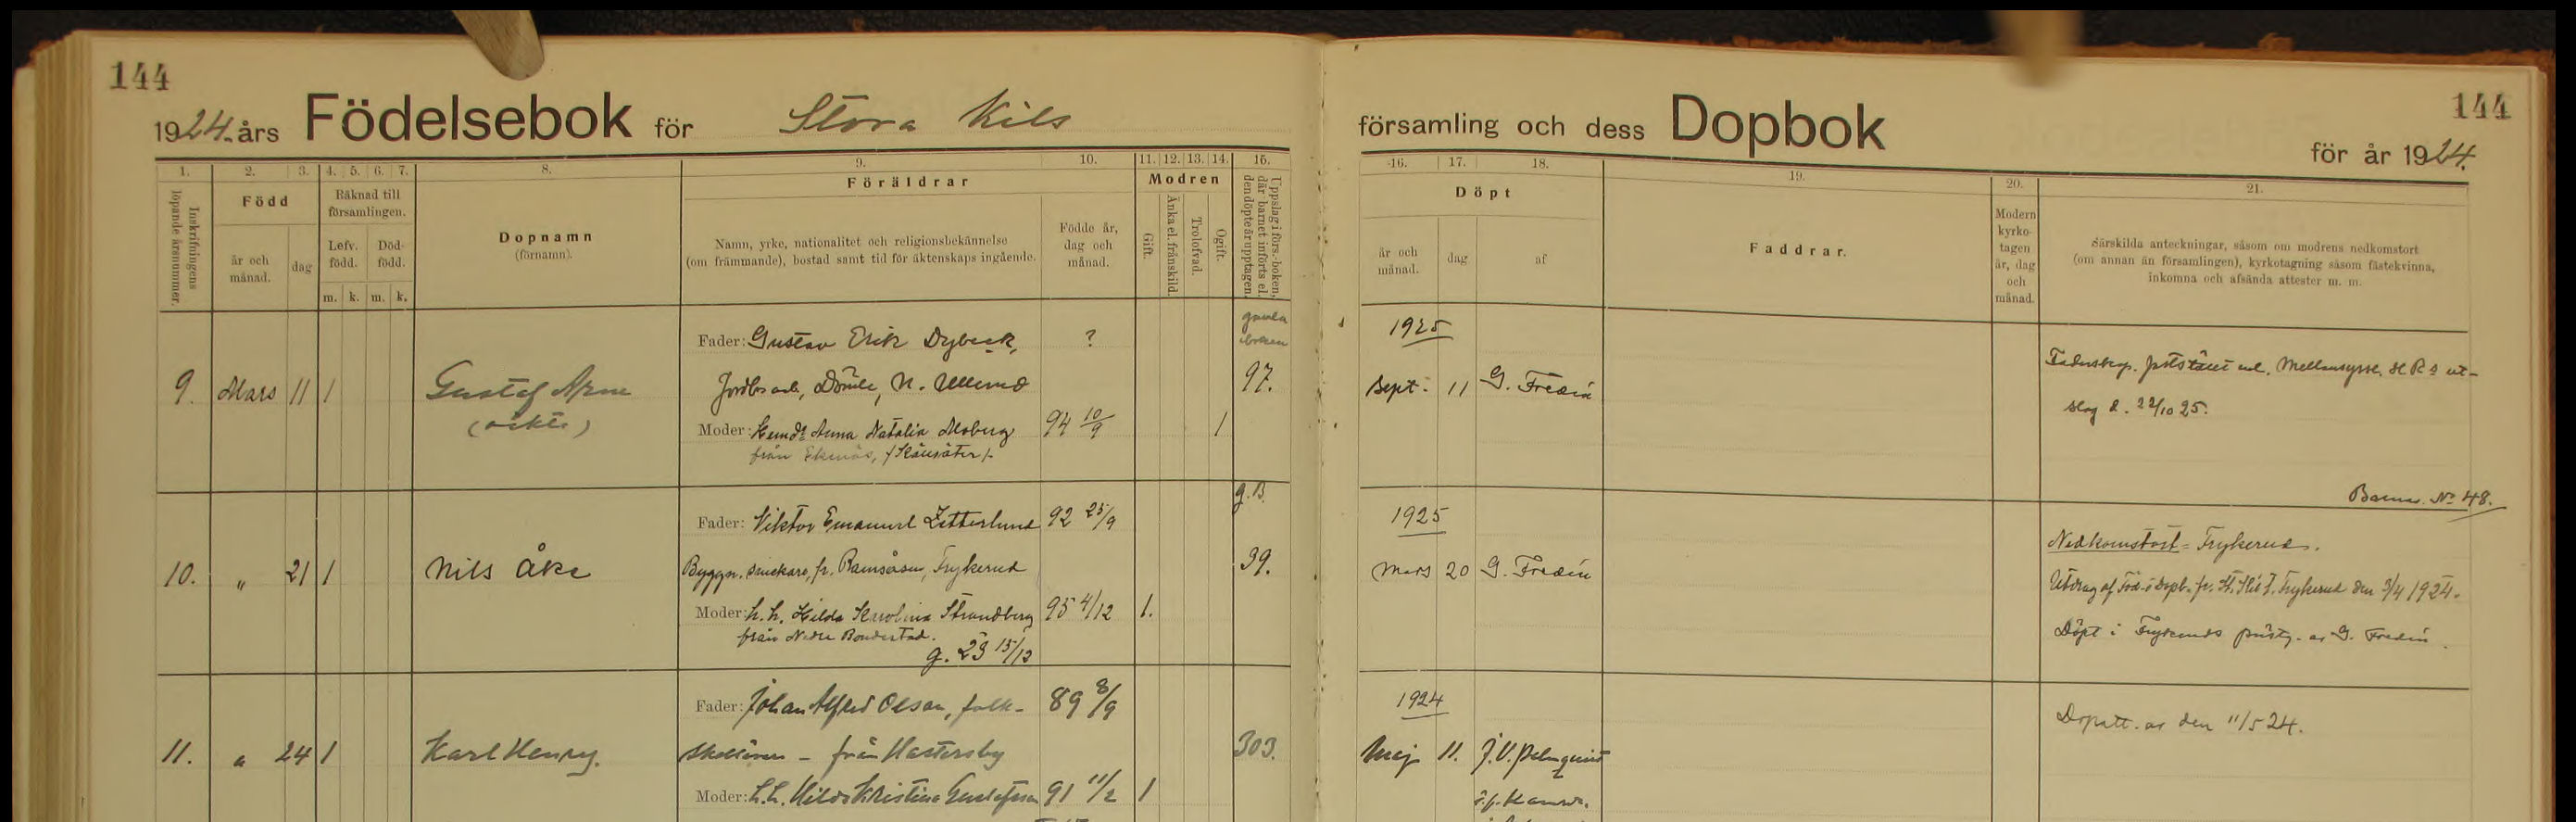 144
1924 års Födelsebok för Stora Kils
1. 2. 3. 4. 5. 6. 7. 8. 9. 10. 11. 12. 13. 14. 15.
Inskrifningens
löpande årsnummer.
Född
år och
månad.
dag
Räknad till
församlingen.
Lefv.
född.
Död-
född.
m. k. m. k.
Dopnamn
(förnamn).
Föräldrar
Namn, yrke, nationalitet och religionsbekännelse
(om främmande), bostad samt tid för äktenskaps ingående.
Födde år,
dag och
månad.
Modren
Gift.
Änka el. frånskild.
Trolofvad.
Ogift.
Uppslag i förs.-boken,
där barnet införts el.
den döpte är upptagen.
9. Mars 11 1
Gustaf Arne
(äkta)
Fader: Gustav Erik Dybeck, ?
Domle, N. Ullerud
Moder: Hemd. Anna Natalia Moberg 94 10/9 1
från Ekenäs,
gamla
boken
97.
10. " 21 1
Nils Åke
Fader: Viktor Emanuel Zetterlund 92 25/9
Byggn. snickare, fr. Ramsåsen, Frykerud
Moder: h. h. Hilda Karolina Strandberg 95 4/12 1.
från Nedre Bondestad.
g. 23 15/12
g. B.
39.
11. " 24 1
Karl Henry.
Fader: Johan Alfred Olsson, folk- 89 8/9
skollärare - från Hastersby
Moder: h. h. Hilda Kristina Gustafsson 91 11/2 1
303.
församling och dess Dopbok för år 1924.
144
16. 17. 18. 19. 20. 21.
Döpt
år och
månad.
dag
af
Faddrar.
Modern
kyrko-
tagen
år, dag
och
månad.
Särskilda anteckningar, såsom om modrens nedkomstort
(om annan än församlingen), kyrkotagning såsom fästekvinna,
inkomna och afsända attester m. m.
1925
Sept. 11 G. Fredin
Fadersksp. fastställt enl. Mellansyssl. HRs ut-
slag d. 22/10 25.
Barnav. No 48.
1925
Mars 20 G. Fredin
Nedkomstort = Frykerud.
Utdrag af Föd- o Dopb. fr. St. Kil t. Frykerud den 3/4 1924.
Döpt i Frykeruds prästg. av G. Fredin.
1924
Maj 11. J. V. Palmquist
Dopatt. av den 11/5 24.